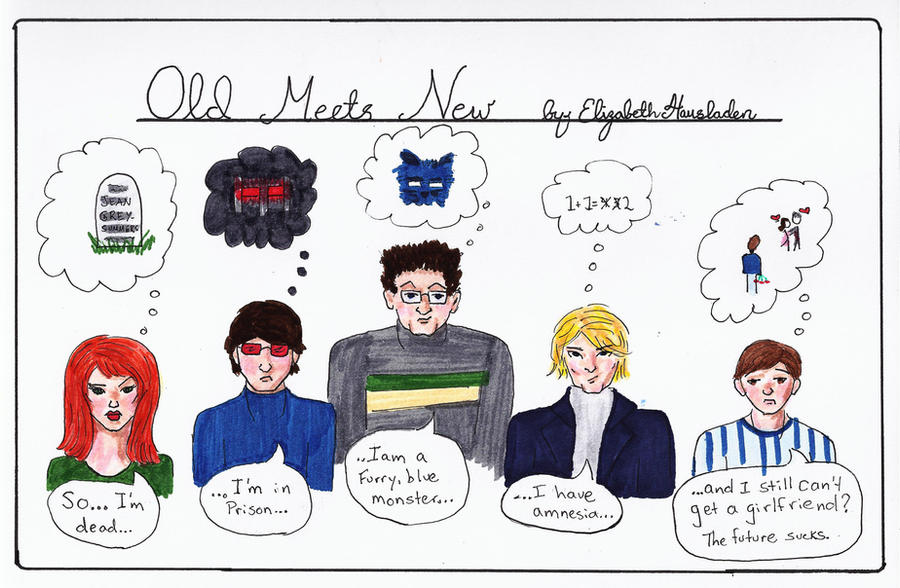 Old Meets New by: Elizabeth Hausladen
JEAN
GREY-
SUMMERS
1+1=
2
So... I'm
dead...
...I'm in
Prison...
...I am a
Furry, blue
monster...
...I have
amnesia...
...and I still can't
get a girlfriend?
The future sucks.